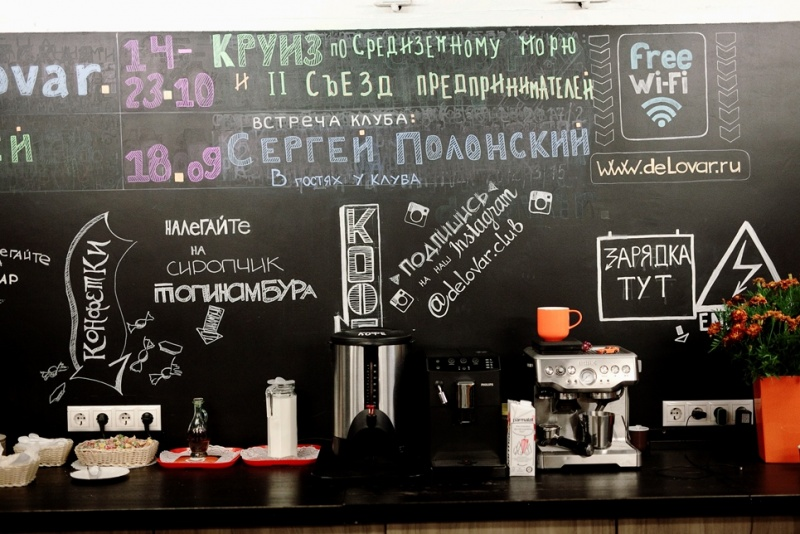 ovar.
14-
23.10
КРУИЗ ПО СРЕДИЗЕМНОМУ МОРЮ
И II СЪЕЗД ПРЕДПРИНИМАТЕЛЕЙ
Free
Wi-Fi
ВСТРЕЧА КЛУБА:
18.09
СЕРГЕЙ ПОЛОНСКИЙ
В ГОСТЯХ У КЛУБА
www.deLovar.ru
КОНФЕТКИ
НАЛЕГАЙТЕ
НА
СИРОПЧИК
ТОПИНАМБУРА
КОФЕ
ПОДПИШИСЬ
НА НАШ Instagram
@delovar.club
ЗАРЯДКА
ТУТ
PHILIPS
parmalat